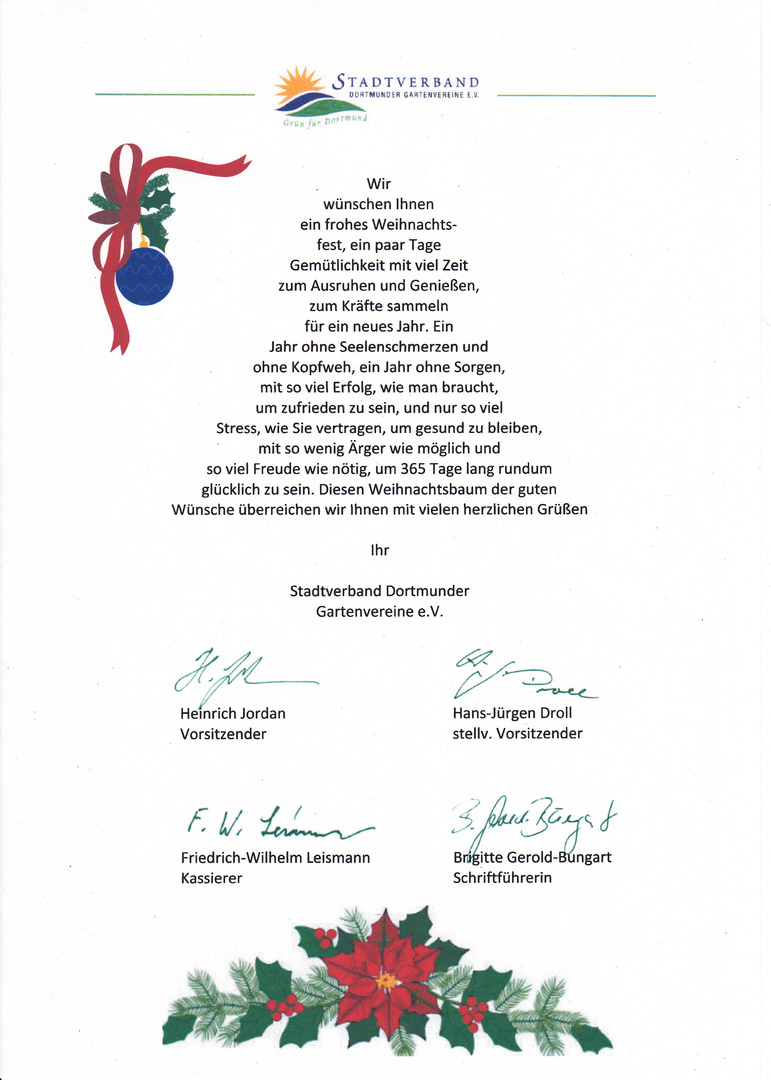 STADTVERBAND
DORTMUNDER GARTENVEREINE E.V.
Grün für Dortmund
Wir
wünschen Ihnen
ein frohes Weihnachts-
fest, ein paar Tage
Gemütlichkeit mit viel Zeit
zum Ausruhen und Genießen,
zum Kräfte sammeln
für ein neues Jahr. Ein
Jahr ohne Seelenschmerzen und
ohne Kopfweh, ein Jahr ohne Sorgen,
mit so viel Erfolg, wie man braucht,
um zufrieden zu sein, und nur so viel
Stress, wie Sie vertragen, um gesund zu bleiben,
mit so wenig Ärger wie möglich und
so viel Freude wie nötig, um 365 Tage lang rundum
glücklich zu sein. Diesen Weihnachtsbaum der guten
Wünsche überreichen wir Ihnen mit vielen herzlichen Grüßen
Ihr
Stadtverband Dortmunder
Gartenvereine e.V.
Heinrich Jordan
Vorsitzender
Hans-Jürgen Droll
stellv. Vorsitzender
F. W.
Friedrich-Wilhelm Leismann
Kassierer
Brigitte Gerold-Bungart
Schriftführerin